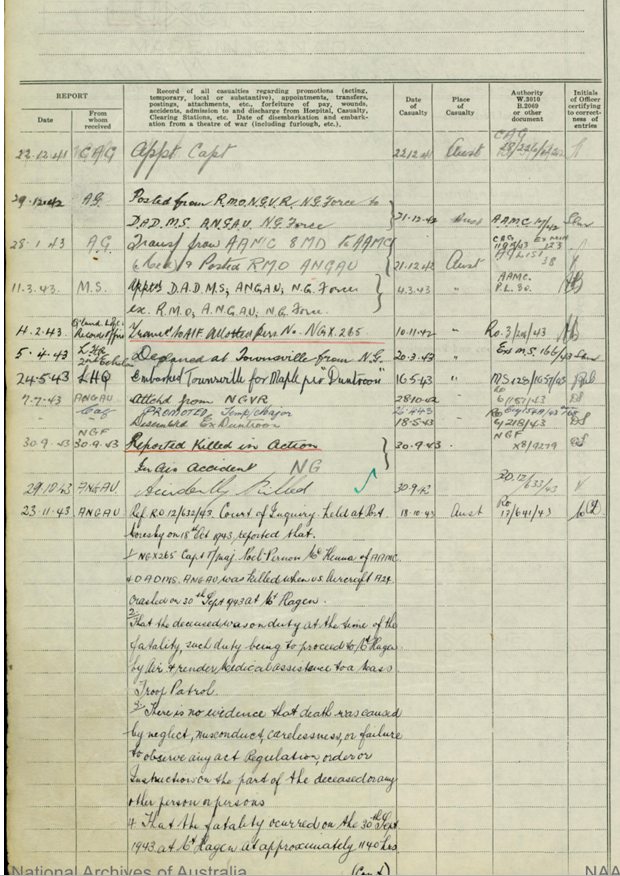 REPORT
Date
From whom received
Record of all casualties regarding promotions (acting,
temporary, local or substantive), appointments, transfers,
postings, attachments, etc., forfeiture of pay, wounds,
accidents, admission to and discharge from Hospital, Casualty
Clearing Stations, etc. Date of disembarkation and embark-
ation from a theatre of war (including furlough, etc.).
Date of Casualty
Place of Casualty
Authority W.3010 B.2069 or other document
Initials of Officer certifying to correct-ness of entries
22.12.41 CAG Appt. Capt 22.12.41 Aust CAG
29.12.42 A.G. Posted from R.M.O. N.G.V.R. N.G. Force to
D.A.D.M.S. A.N.G.A.U. N.G. Force 21.12.42 Aust A.A.M.C.
28.1.43 A.G. Transf from AAMC 8 MD to AAMC
& Posted RMO ANGAU 21.12.42 Aust
11.3.43 M.S. Appt D.A.D.M.S; ANGAU; N.G. Force 4.3.43 " AAMC. P.L. 30.
ex. R.M.O; A.N.G.AU; N.G. Force.
4.2.43 Record Office Transf to AIF Allotted Pers. No. NGX.265 10.11.42 " Ro. 43
5.4.43 2nd Echelon Deplaned at Townsville from N.G. 20.3.43 " M.S. 166/43
24.5.43 LHQ Embarked Townsville for Maple per "Duntroon" 16.5.43 "
7.7.43 ANGAU Attchd from NGVR 28.10.42 "
PROMOTED Temp/Major
Disembkd Ex Duntroon 18.5.43 218/43
30.9.43 NGF 30.9.43 Reported Killed in Action 30.9.43 " NGF X8/9279
In Air Accident NG
29.10.43 ANGAU. Accidently Killed 30.9.43 20.12/633/43
23.11.43 ANGAU Ref RO 12/632/43. Court of Inquiry held at Port 18.10.43 Aust Ro 13/691/43
Moresby on 18th Oct 1943, reported that.
1/ NGX265 Capt T/Maj. Vernon Mc Kenna of AAMC
& DADMS. ANGAU was killed when U.S. Aircraft A24
crashed on 30th Sept 1943 at Mt Hagen.
2. That the deceased was on duty at the time of the
fatality, such duty being to proceed to Mt Hagen
by Air & render Medical assistance to a
Troop Patrol.
3. There is no evidence that death was caused
by neglect, misconduct, carelessness, or failure
to observe any act Regulation, order or
Instruction on the part of the deceased or any
other person or persons
4. That the fatality ocurred on the 30th Sept
1943 at Mt Hagen at approximately 1140 hrs.
(Cont)
National Archives of Australia
NAA